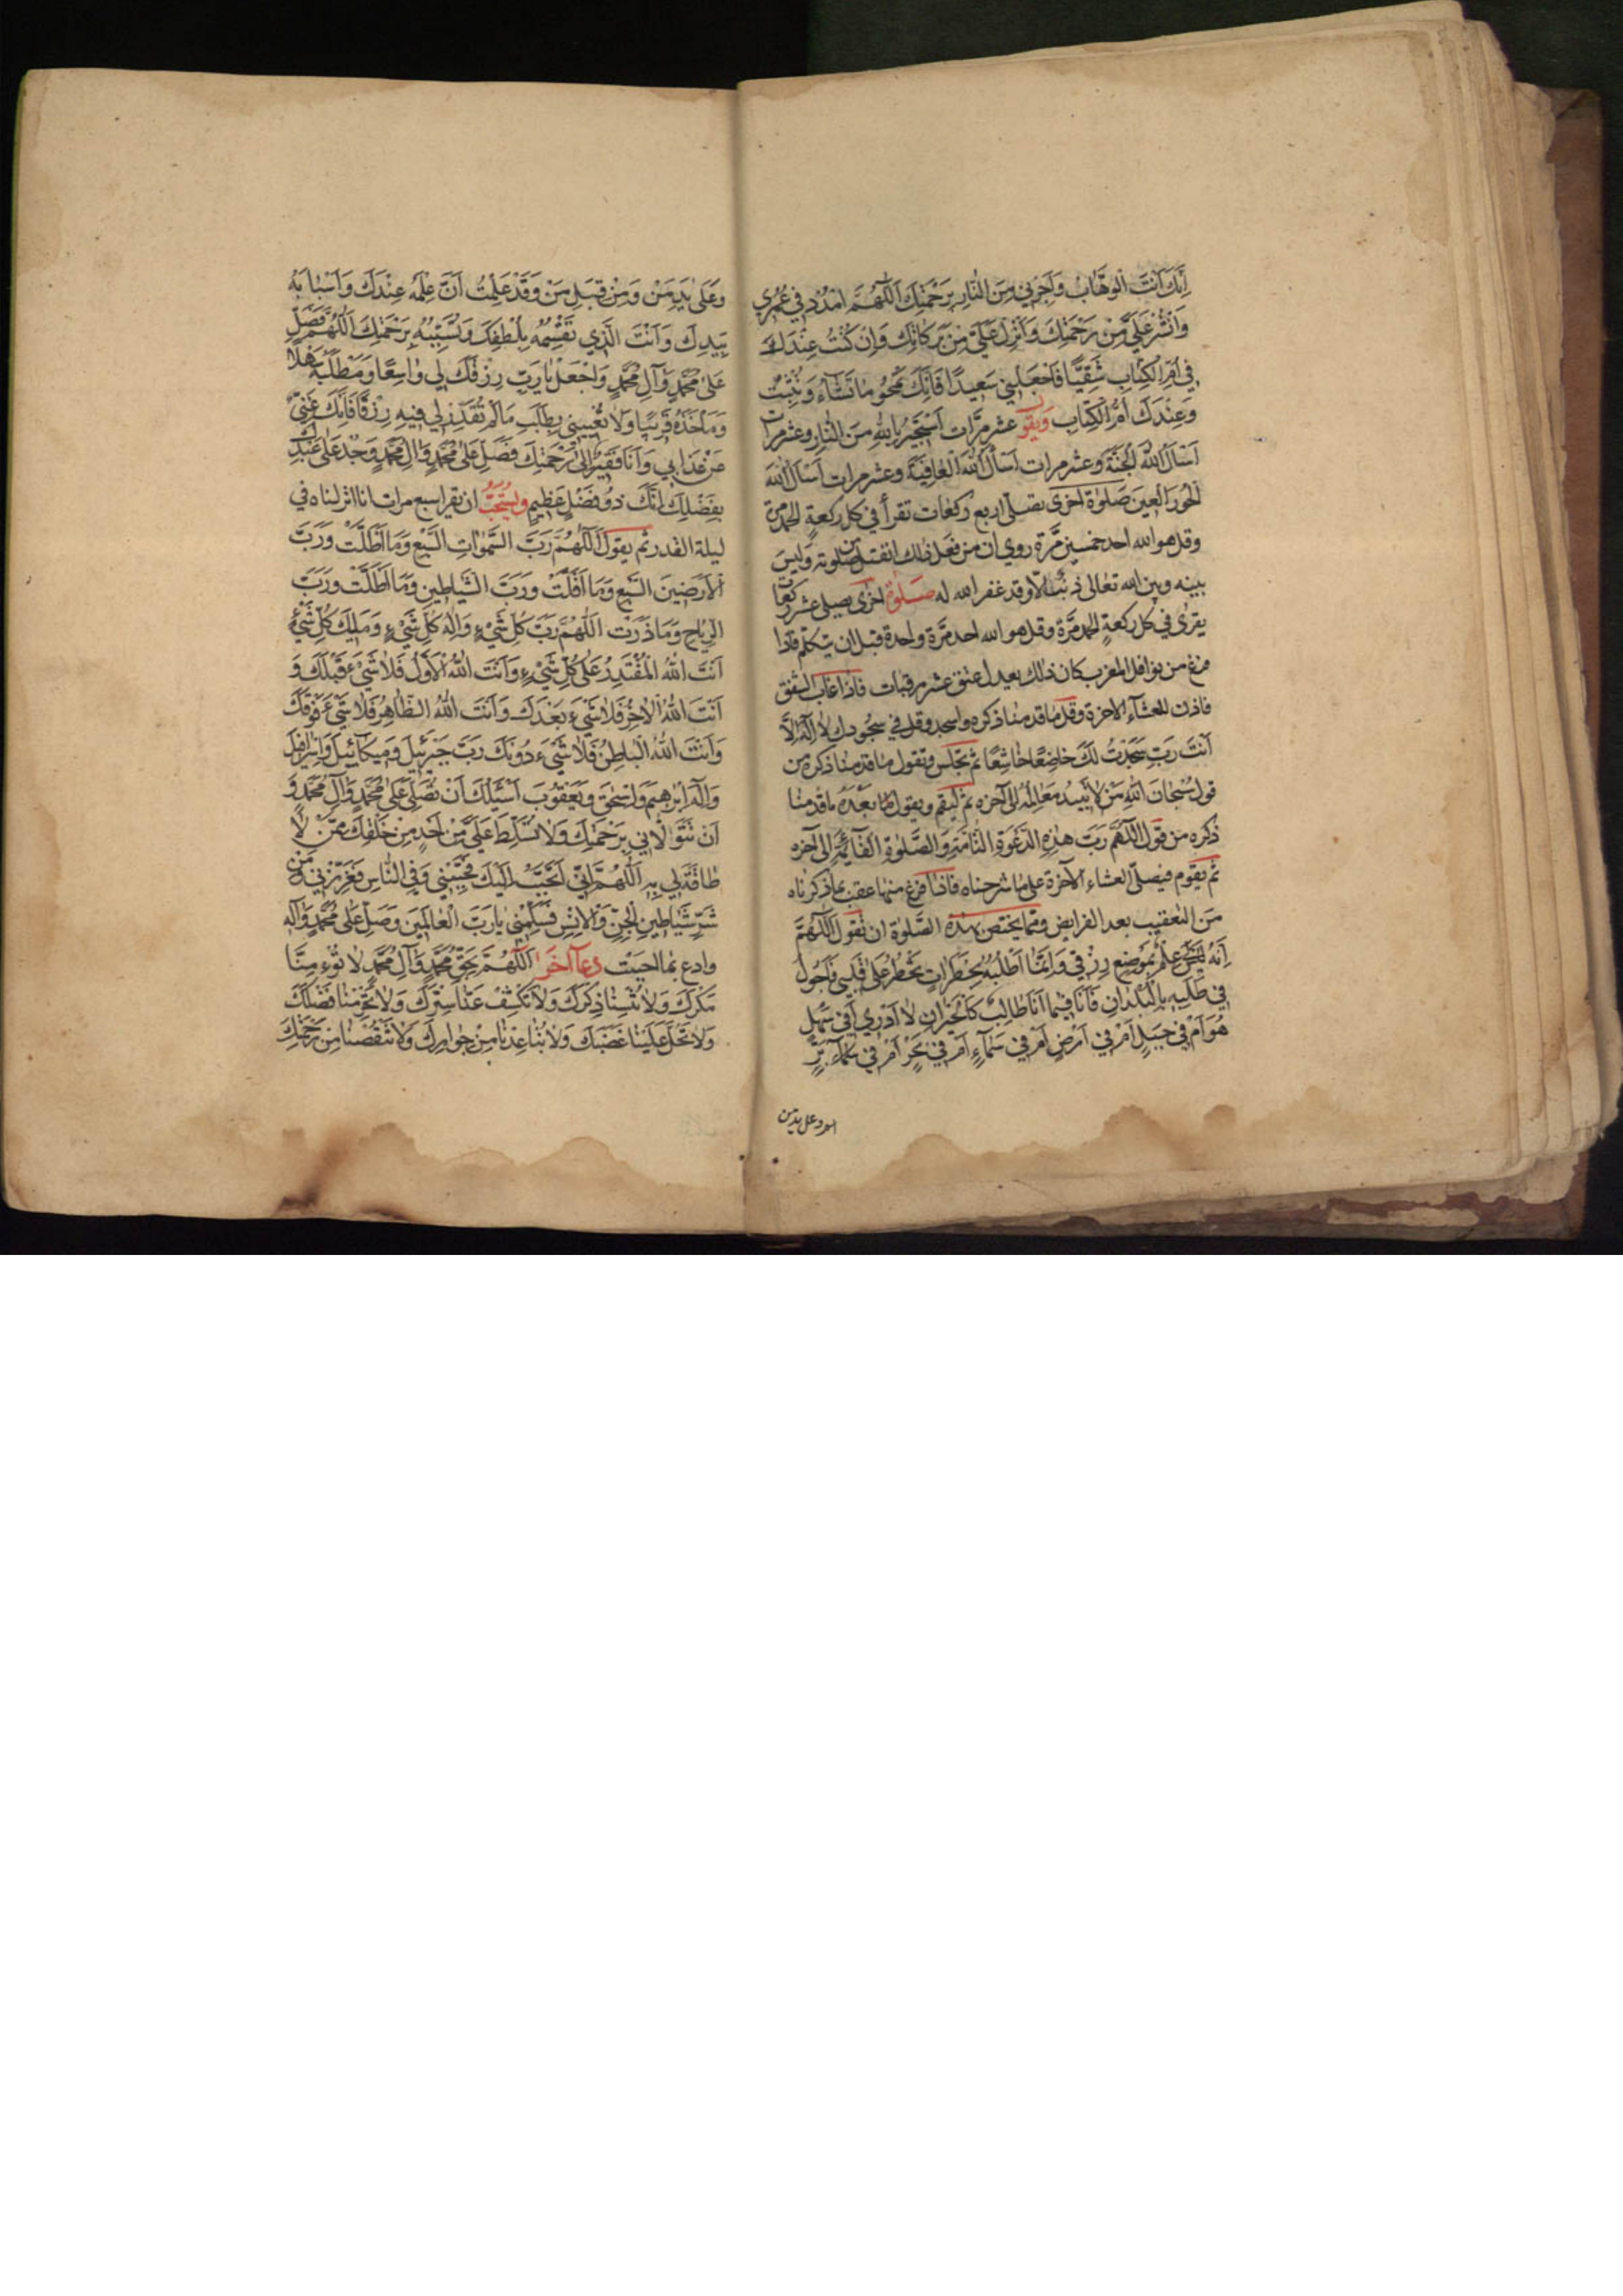 اِنَّكَ اَنْتَ الْوَهَّابُ وَاَجِرْنِي مِنَ النَّارِ بِرَحْمَتِكَ اَللّٰهُمَّ امْدُدْ فِي عُمْرِي
وَانْشُرْ عَلَيَّ مِنْ رَحْمَتِكَ وَاَنْزِلْ عَلَيَّ مِنْ بَرَكَاتِكَ وَاِنْ كُنْتُ عِنْدَكَ
فِي اُمِّ الْكِتَابِ شَقِيًّا فَاجْعَلْنِي سَعِيدًا فَاِنَّكَ تَمْحُو مَا تَشَاءُ وَتُثْبِتُ
وَعِنْدَكَ اُمُّ الْكِتَابِ وَيقول عشر مرَّات اَسْتَجِيرُ بِاللهِ مِنَ النَّارِ وعشر مرات
اَسْاَلُ اللهَ الْجَنَّةَ وعشر مرات اَسْاَلُ اللهَ الْعَافِيَةَ وعشر مرات اَسْاَلُ اللهَ
الْحُورَ الْعِينَ صَلوٰة اخرى تصلى اربع ركعات تقرأ في كل ركعةٍ الحمد مرة
وقل هو الله احد خمسين مَّرة روي ان من فعل ذلك انفتل من صلوته وَليسَ
بينه وبين الله تعالى ذنبٌ الّا وقد غفر الله له صَلوة اخرى يصلي عشر ركعات
يقرئ في كل ركعةٍ الحمد مرَّة وقل هو الله احد مرَّة واحدة قبل ان يتكلم فاذا
فرغ من نوافل المغرب كان ذلك يعدل عتق عشر رقبات فاذا غاب الشفق
فاذن للعشآء الاخرة وقل ما قدمنا ذكره واسجد وقل في سجودك لا اله الَّا
اَنْتَ رَبِّ سَجَدْتُ لَكَ خَاضِعًا خَاشِعًا ثم تجلس وتقول ما قدمنا ذكره من
قول سُبْحَانَ اللهِ مَنْ لَا تَبِيدُ مَعَالِمُهُ الى آخره ثم ليقم ويقول ما بعده ما قدمنا
ذكره من قول اَللّٰهُمَّ رَبَّ هٰذِهِ الدَّعْوَةِ التَّامَّةِ وَالصَّلوٰةِ الْقَائِمَةِ الى آخره
ثم يقوم فيصلّي العشاء الآخرة على ما شرحناه فاذا فرغ منها عقب بما ذكرناه
من التعقيب بعد الفرايض ومما يختص بهذه الصَّلوة ان تقول اَللّٰهُمَّ
اِنَّهُ لَيْسَ لِي عِلْمٌ بِمَوْضِعِ رِزْقِي وَاِنَّمَا اَطْلُبُهُ بِخَطَرَاتٍ تَخْطُرُ عَلَى قَلْبِي فَاَجُولُ
فِي طَلَبِهِ الْبُلْدَانَ فَاَنَا فِيمَا اَنَا طَالِبٌ كَالْحَيْرَانِ لَا اَدْرِي اَفِي سَهْلٍ
هُوَ اَمْ فِي جَبَلٍ اَمْ فِي اَرْضٍ اَمْ فِي سَمَآءٍ اَمْ فِي بَحْرٍ اَمْ فِي بَرٍّ
وعلى يدمن
وَعَلَى يَدِ مَنْ وَمِنْ قِبَلِ مَنْ وَقَدْ عَلِمْتُ اَنَّ عِلْمَهُ عِنْدَكَ وَاَسْبَابَهُ
بِيَدِكَ وَاَنْتَ الَّذِي تَقْسِمُهُ بِلُطْفِكَ وَتُسَبِّبُهُ بِرَحْمَتِكَ اَللّٰهُمَّ فَصَلِّ
عَلَى مُحَمَّدٍ وَآلِ مُحَمَّدٍ وَاجْعَلْ يَا رَبِّ رِزْقَكَ لِي وَاسِعًا وَمَطْلَبَهُ سَهْلًا
وَمَاْخَذَهُ قَرِيبًا وَلَا تُعَنِّنِي بِطَلَبِ مَا لَمْ تُقَدِّرْ لِي فِيهِ رِزْقًا فَاِنَّكَ غَنِيٌّ
عَنْ عَذَابِي وَاَنَا فَقِيرٌ اِلَى رَحْمَتِكَ فَصَلِّ عَلَى مُحَمَّدٍ وَآلِ مُحَمَّدٍ وَجُدْ عَلَى عَبْدِكَ
بِفَضْلِكَ اِنَّكَ ذُو فَضْلٍ عَظِيمٍ ويُستحَبُّ ان يقرا سبع مرات انا انزلناه في
ليلة القدر ثم يقول اَللّٰهُمَّ رَبَّ السَّمٰوَاتِ السَّبْعِ وَمَا اَظَلَّتْ وَرَبَّ
الْاَرَضِينَ السَّبْعِ وَمَا اَقَلَّتْ وَرَبَّ الشَّيَاطِينِ وَمَا اَضَلَّتْ وَرَبَّ
الرِّيَاحِ وَمَا ذَرَتْ اَللّٰهُمَّ رَبَّ كُلِّ شَيْءٍ وَاِلٰهَ كُلِّ شَيْءٍ وَمَلِيكَ كُلِّ شَيْءٍ
اَنْتَ اللهُ الْمُقْتَدِرُ عَلَى كُلِّ شَيْءٍ وَاَنْتَ اللهُ الْاَوَّلُ فَلَا شَيْءَ قَبْلَكَ وَ
اَنْتَ اللهُ الْاٰخِرُ فَلَا شَيْءَ بَعْدَكَ وَاَنْتَ اللهُ الظَّاهِرُ فَلَا شَيْءَ فَوْقَكَ
وَاَنْتَ اللهُ الْبَاطِنُ فَلَا شَيْءَ دُونَكَ رَبَّ جَبْرَئِيلَ وَمِيكَآئِيلَ وَاِسْرَافِيلَ
وَاِلٰهَ اِبْرٰهِيمَ وَاِسْحٰقَ وَيَعْقُوبَ اَسْئَلُكَ اَنْ تُصَلِّيَ عَلَى مُحَمَّدٍ وَآلِ مُحَمَّدٍ وَ
اَنْ تَتَوَلَّانِي بِرَحْمَتِكَ وَلَا تُسَلِّطَ عَلَيَّ مِنْ اَحَدٍ مِنْ خَلْقِكَ مِمَّنْ لَا
طَاقَةَ لِي بِهِ اَللّٰهُمَّ اِنِّي اَتَحَبَّبُ اِلَيْكَ فَحَبِّبْنِي وَفِي النَّاسِ فَعَزِّزْنِي وَمِنْ
شَرِّ شَيَاطِينِ الْجِنِّ وَالْاِنْسِ فَسَلِّمْنِي يَا رَبَّ الْعَالَمِينَ وَصَلِّ عَلَى مُحَمَّدٍ وَآلِهِ
وادع بما احببت دعآ آخر اَللّٰهُمَّ بِحَقِّ مُحَمَّدٍ وَآلِ مُحَمَّدٍ لَا تُؤْمِنَّا
مَكْرَكَ وَلَا تُنْسِنَا ذِكْرَكَ وَلَا تَكْشِفْ عَنَّا سِتْرَكَ وَلَا تَحْرِمْنَا فَضْلَكَ
وَلَا تُحِلَّ عَلَيْنَا غَضَبَكَ وَلَا تُبَاعِدْنَا مِنْ جِوَارِكَ وَلَا تَنْقُصْنَا مِنْ رَحْمَتِكَ